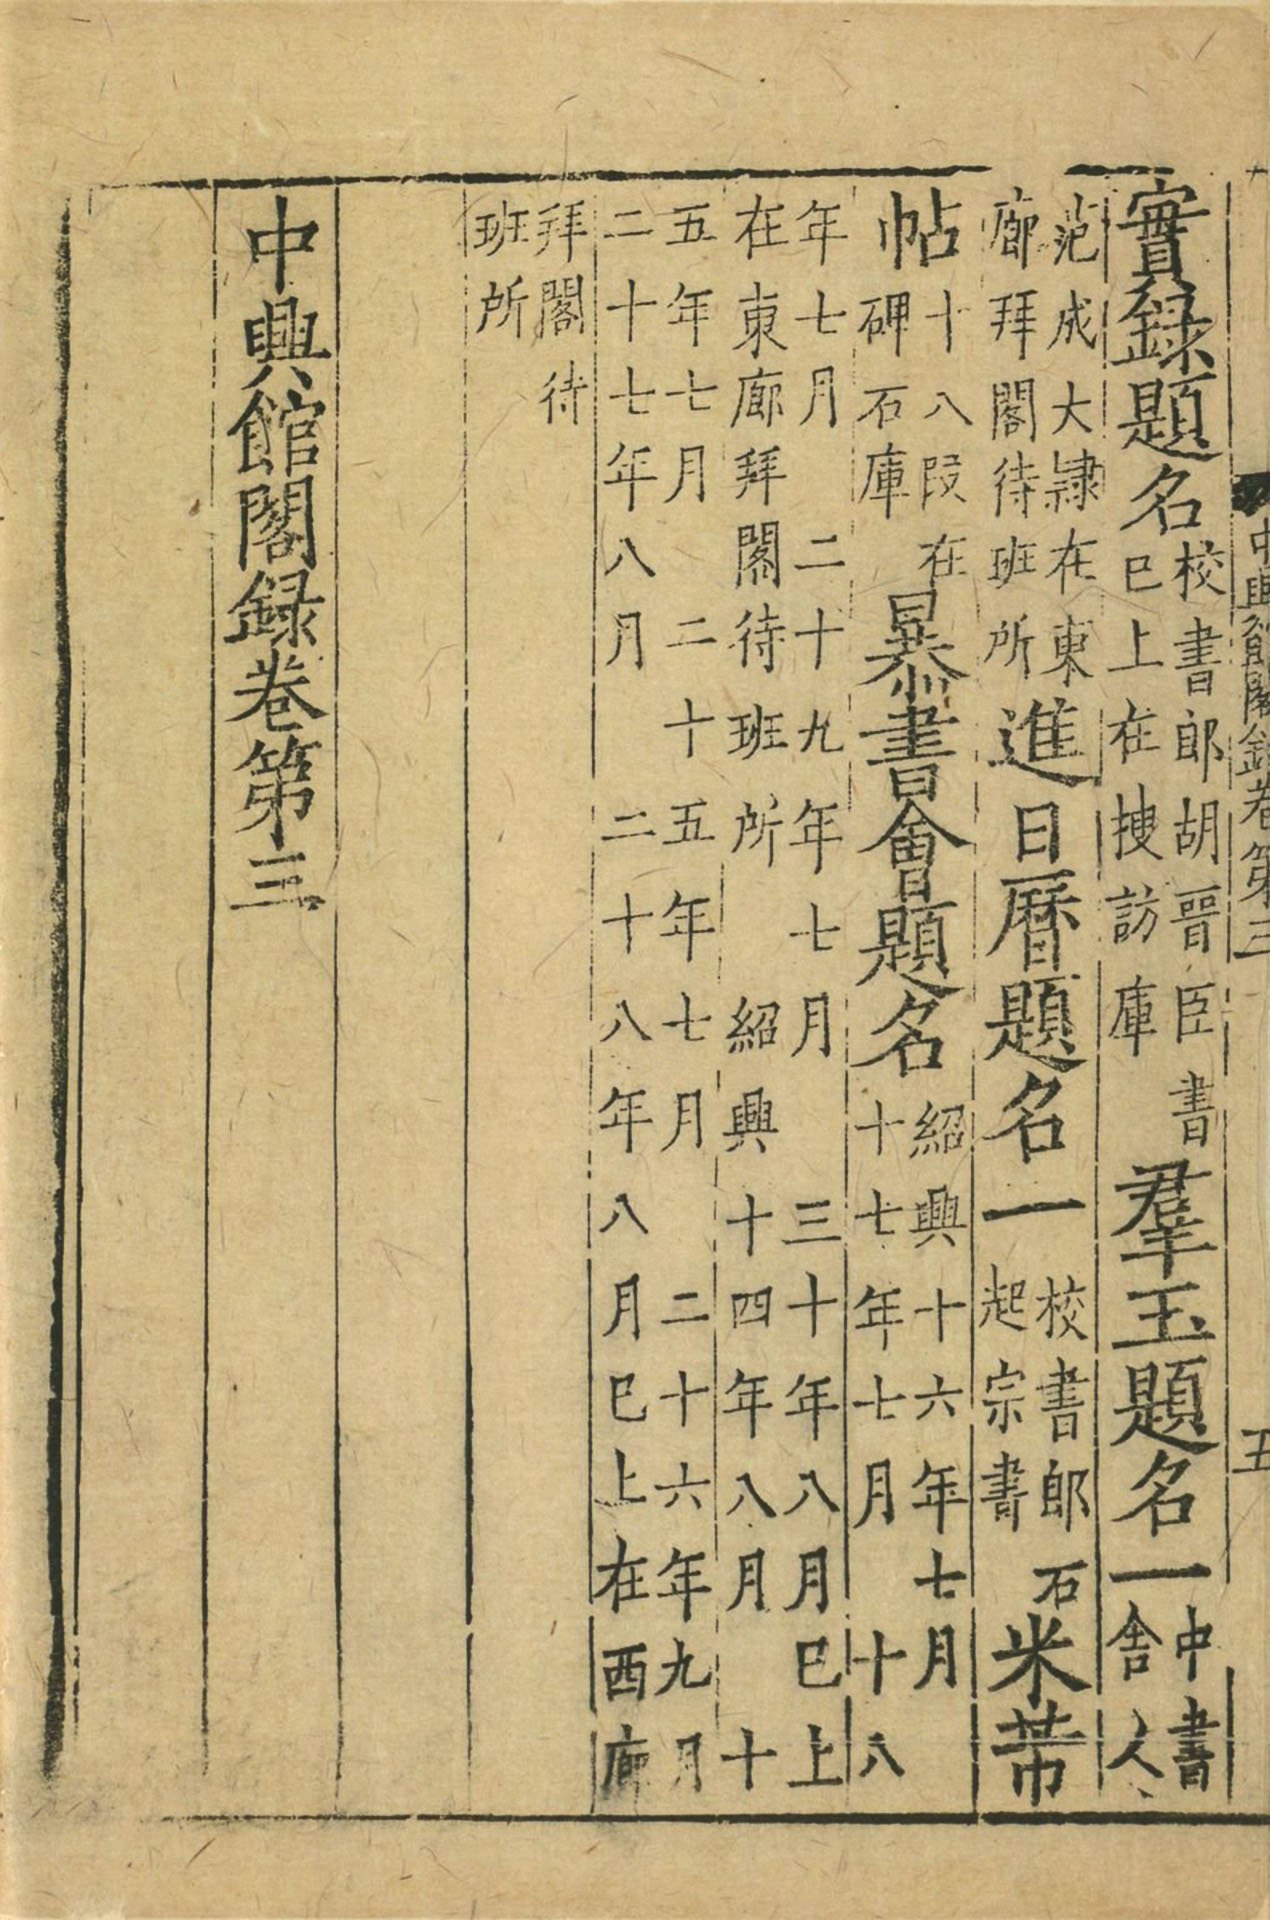 中興館閣録卷第三　五
實録題名校書郎胡晉臣書巳上在搜訪庫羣玉題名一中書舍人
范成大隷在東廊拜閣待班所進日曆題名一校書郎石起宗書米芾
帖十八段在碑石庫暴書會題名紹興十六年七月十七年七月　十八
年七月　二十九年七月　三十年八月巳上在東廊拜閣待班所　紹興十四年八月　十
五年七月　二十五年七月　二十六年九月二十七年八月　二十八年八月巳上在西廊
拜閣待班所
中興館閣録卷第三